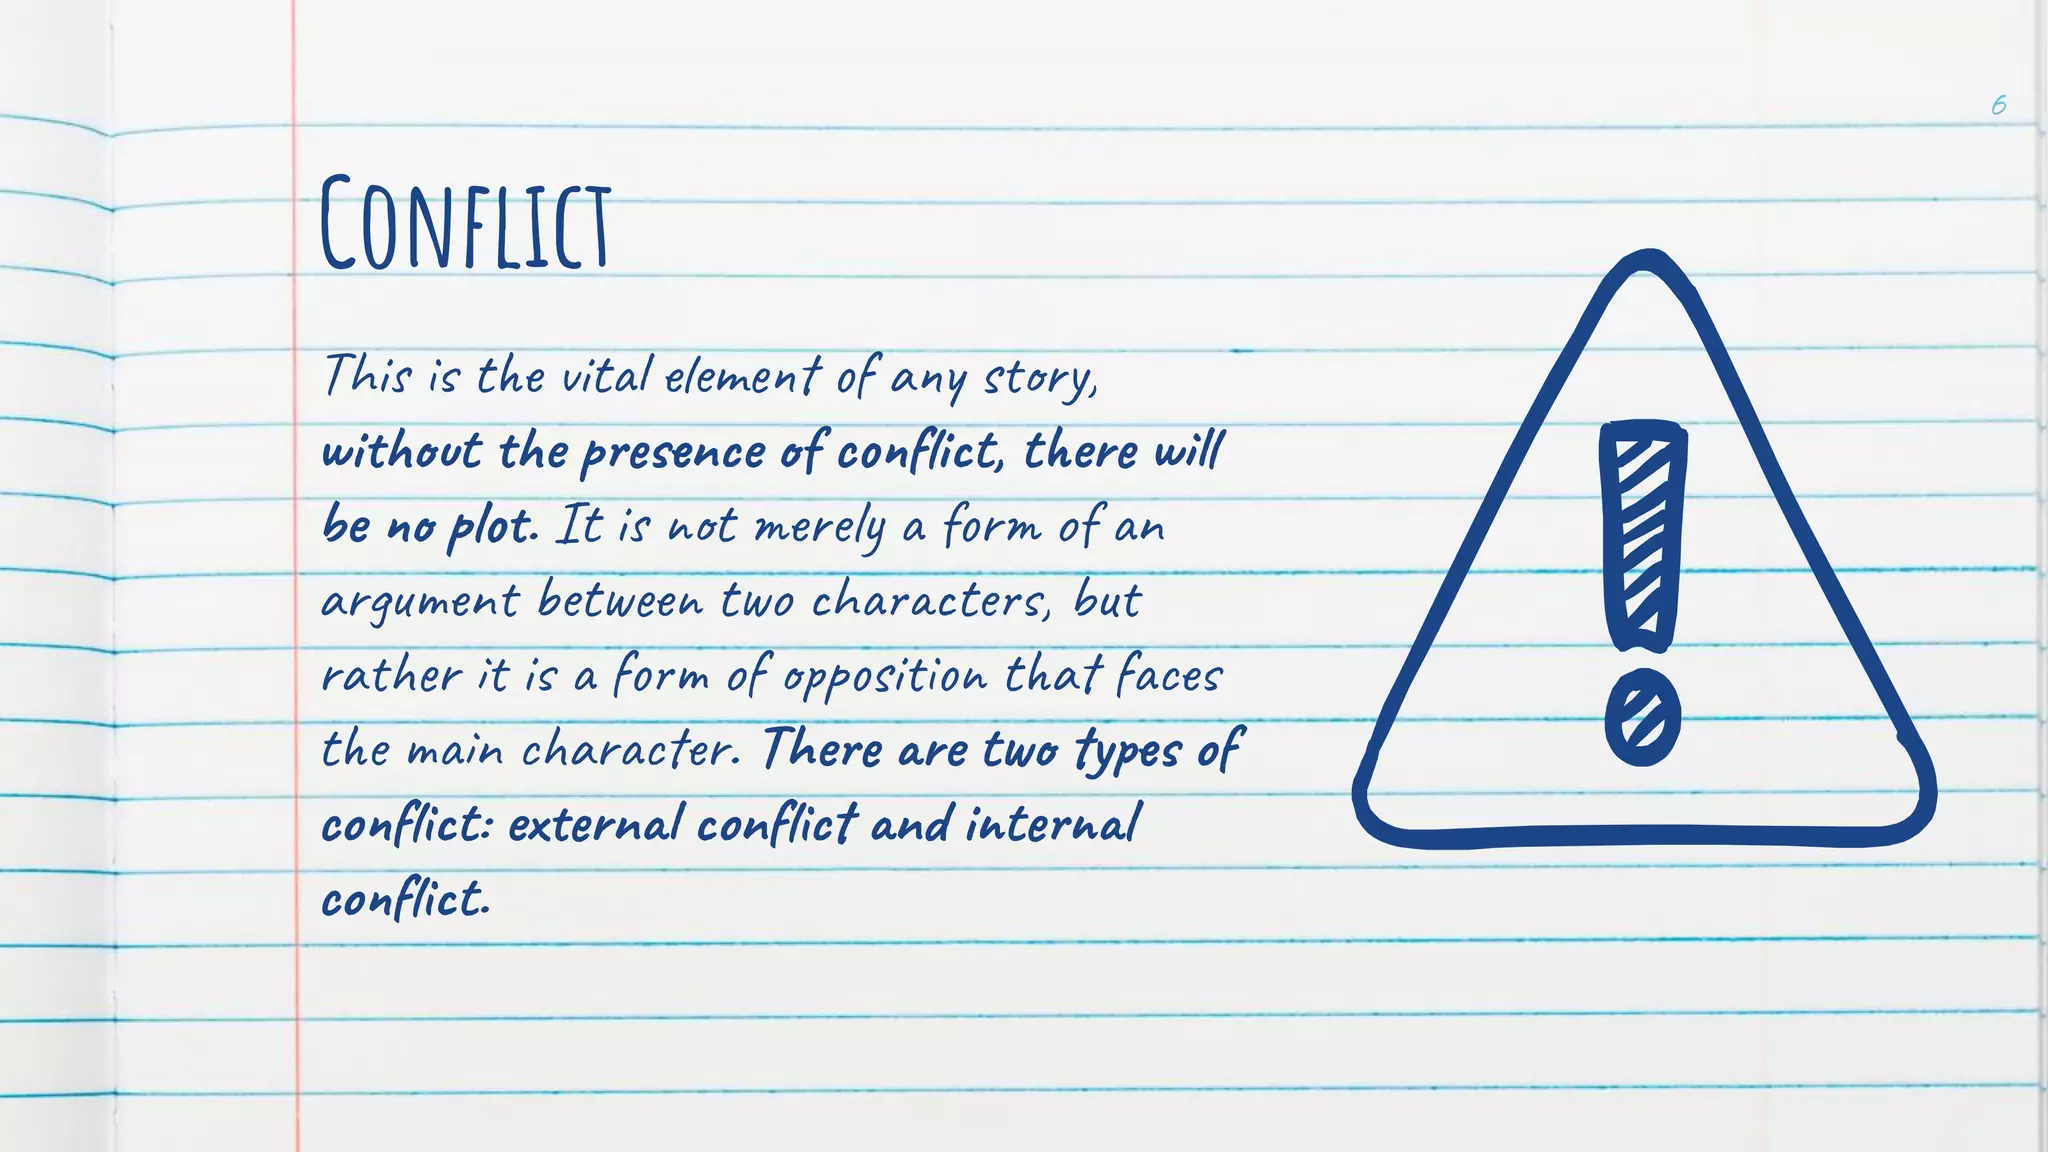 6
Conflict
This is the vital element of any story,
without the presence of conflict, there will
be no plot. It is not merely a form of an
argument between two characters, but
rather it is a form of opposition that faces
the main character. There are two types of
conflict: external conflict and internal
conflict.